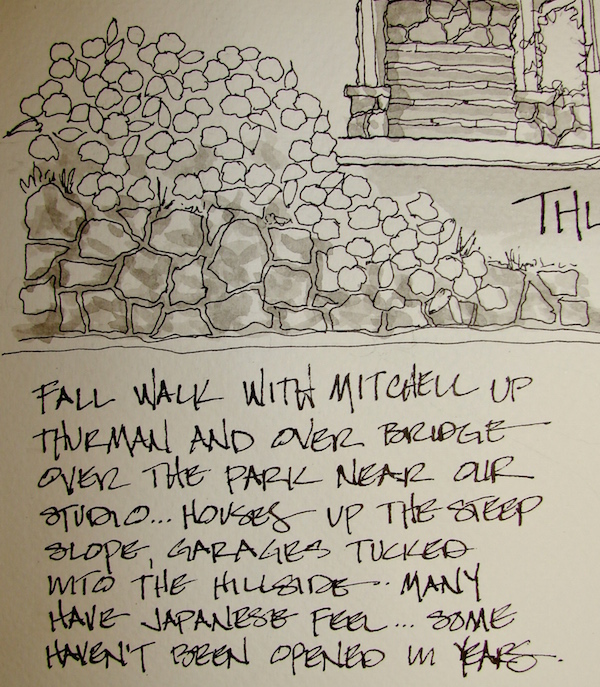 THU
FALL WALK WITH MITCHELL UP
THURMAN AND OVER BRIDGE
OVER THE PARK NEAR OUR
STUDIO... HOUSES UP THE STEEP
SLOPE, GARAGES TUCKED
INTO THE HILLSIDE.. MANY
HAVE JAPANESE FEEL... SOME
HAVEN'T BEEN OPENED IN YEARS.